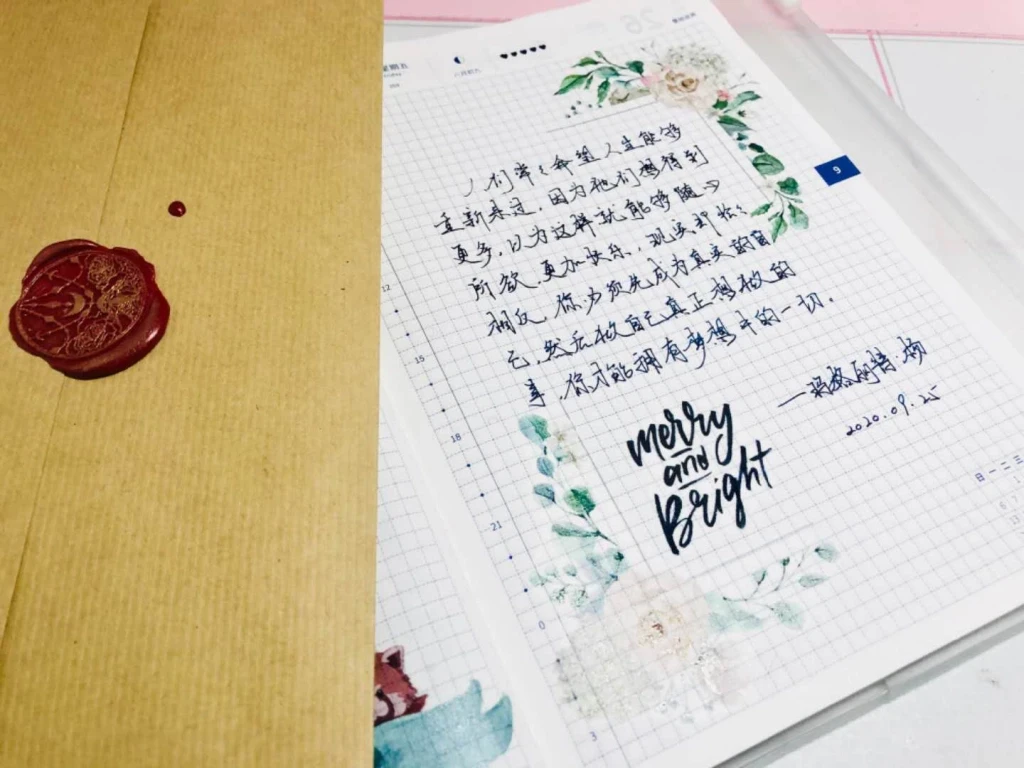 星期五
八月初九
♥♥♥♥♥
26
9
人们常常希望人生能够
重新来过，因为他们想得到
更多，以为这样就能够随心
所欲，更加快乐，现实却恰恰
相反，你必须先成为真实的自
己，然后做自己真正想做的
事，你才能拥有梦想中的一切。
——玛格丽特·杨
2020.09.25
merry
and
Bright
12
15
18
21
0
3
日 一 二 三
6 7
13